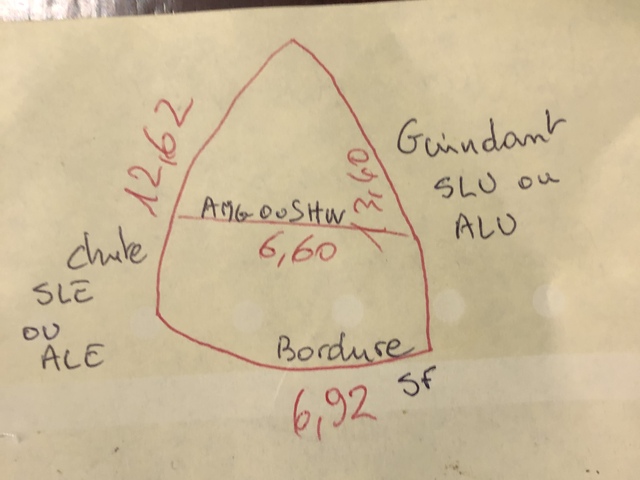 12,62
Guindant
SLU ou
ALU
13,40
AMG OU SHW
6,60
chute
SLE
OU
ALE
Bordure
SF
6,92